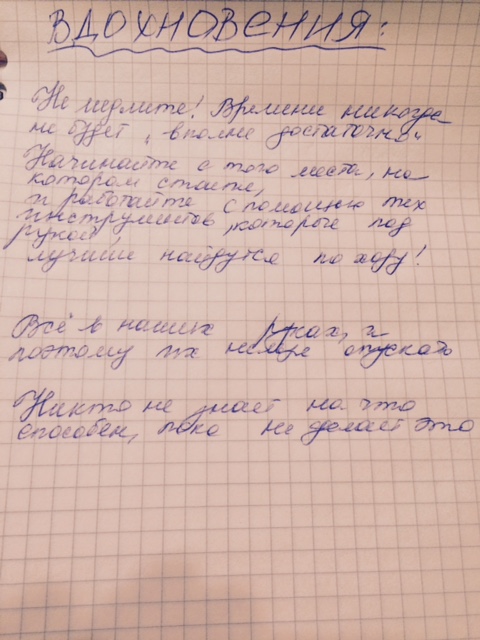 ВДОХНОВЕНИЯ:
Не медлите! Времени никогда
не будет „вполне достаточно"
Начинайте с того места, на
котором стоите,
и работайте с помощью тех
инструментов, которые под
рукой,
лучшие найдутся по ходу!
Всё в наших руках, и
поэтому их нельзя опускать
Никто не знает на что
способен, пока не делает это